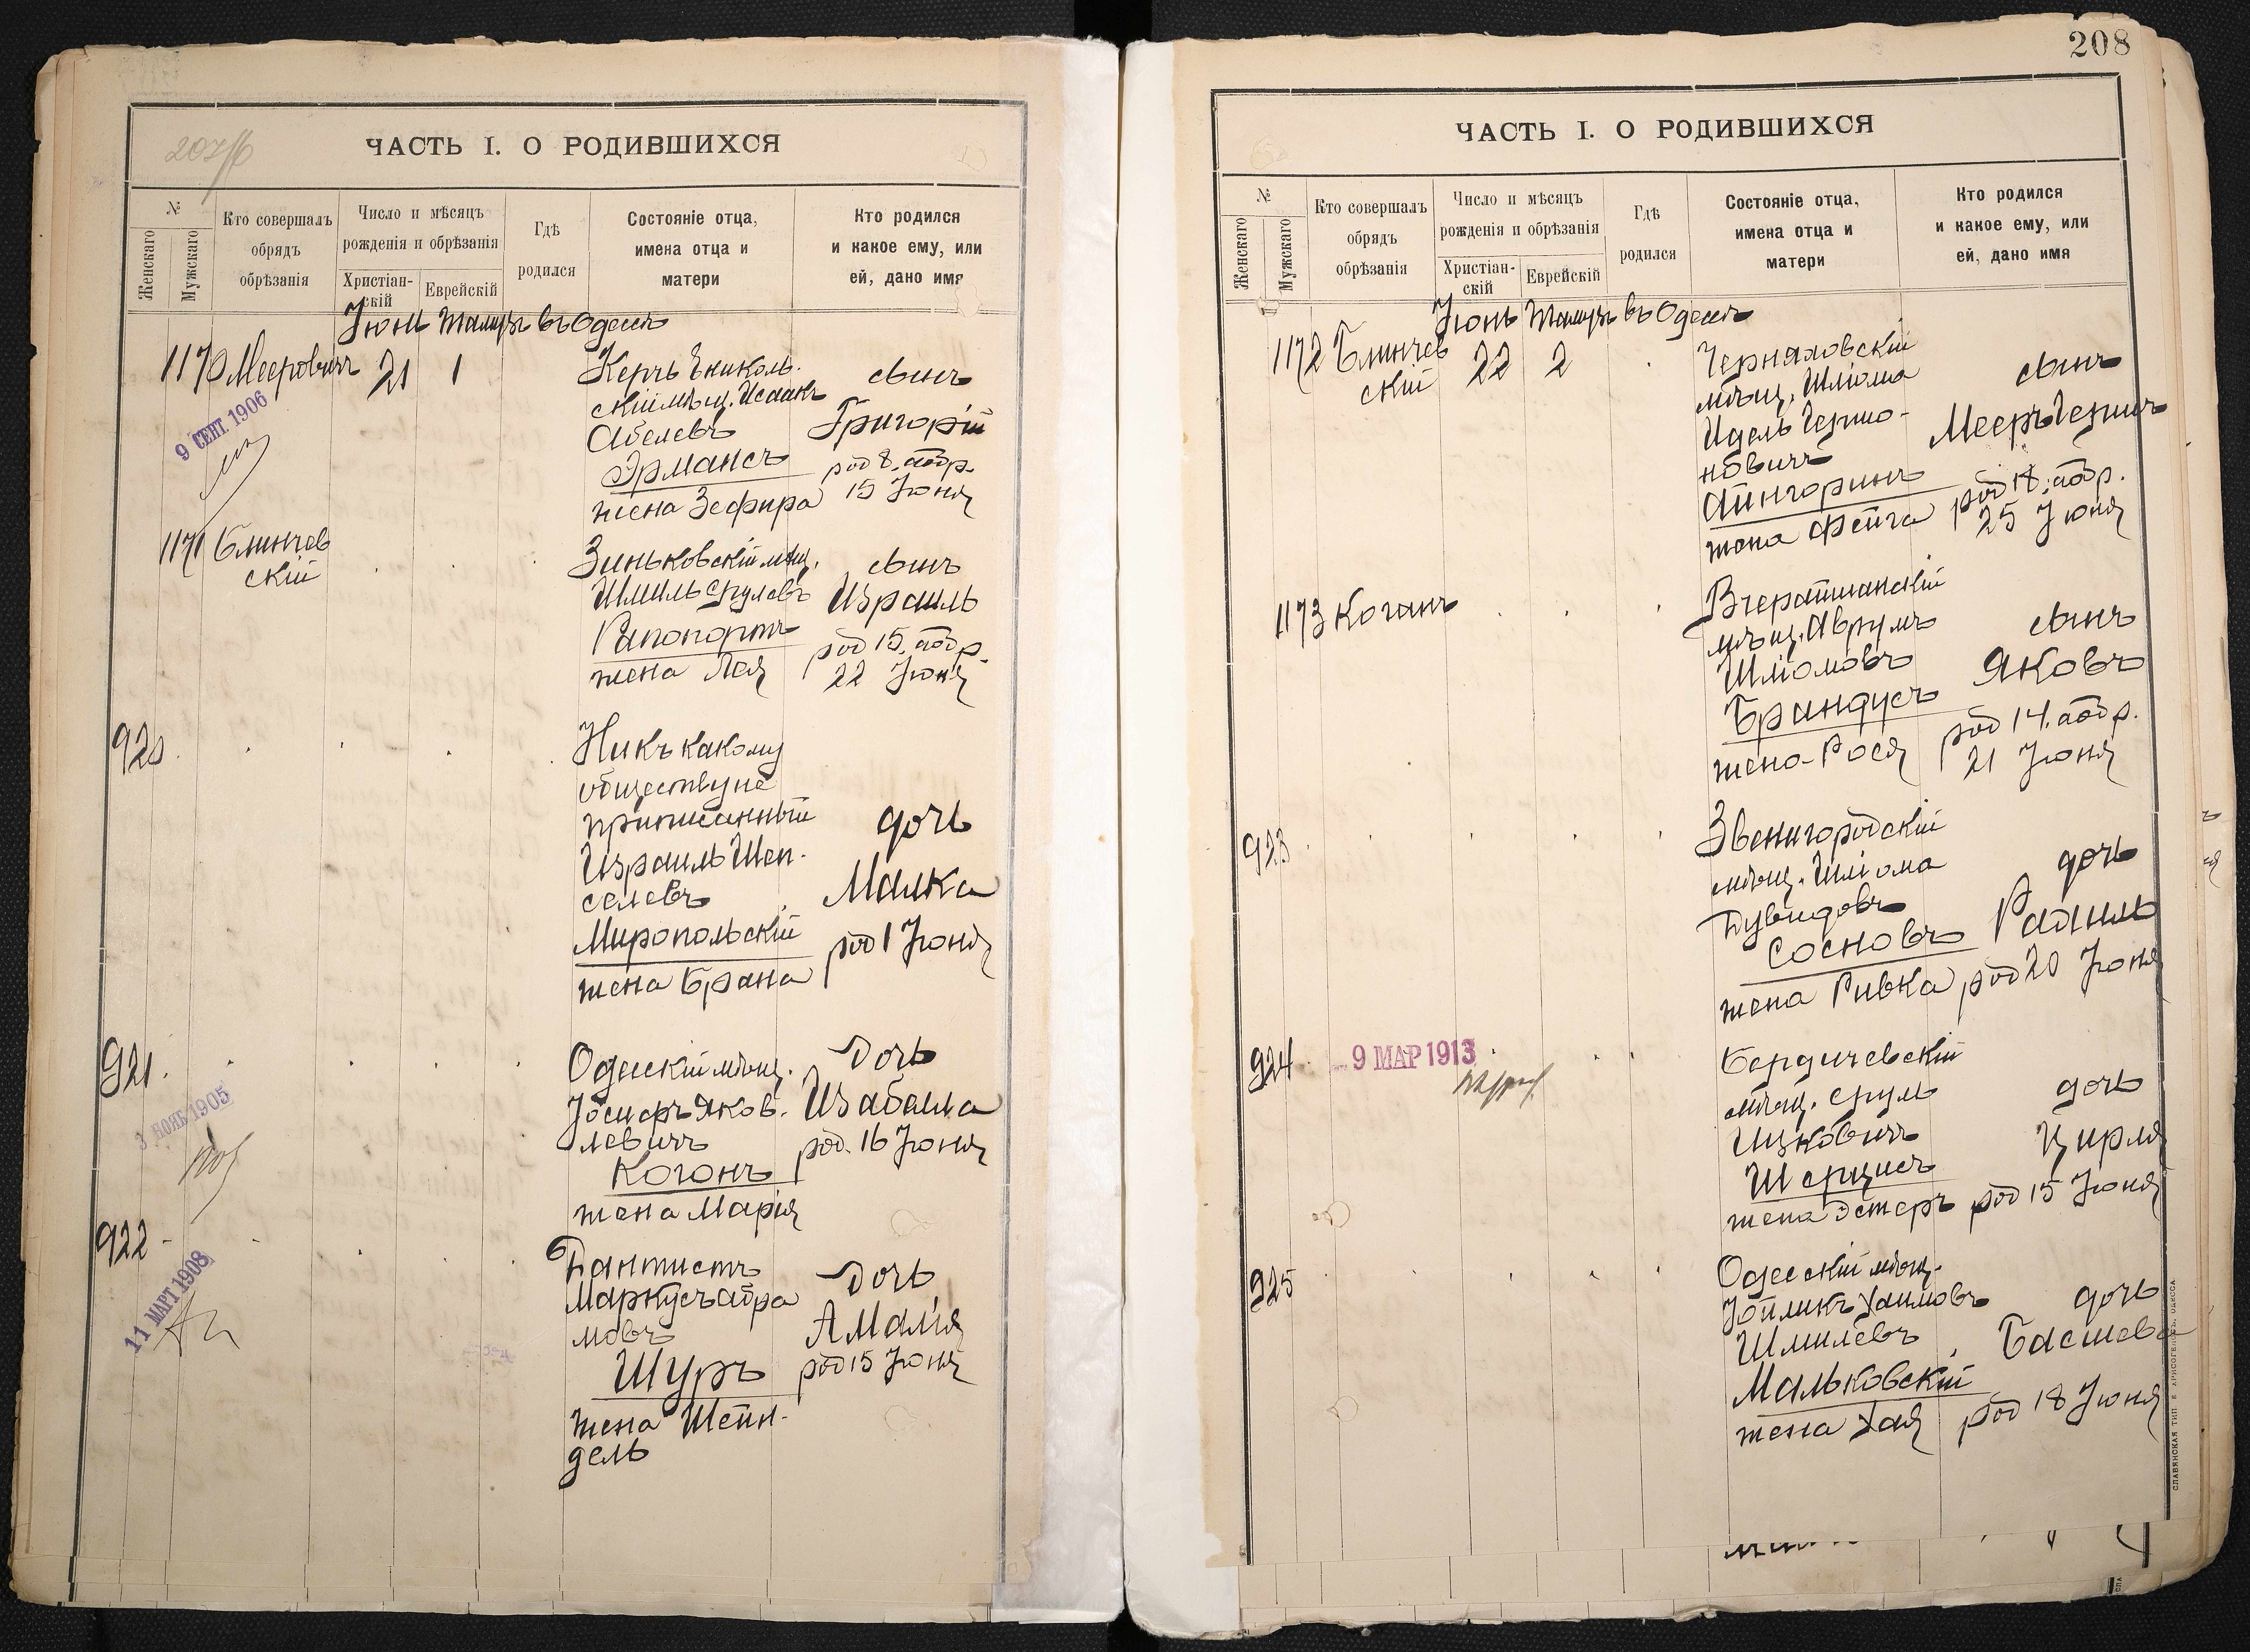 207/б
ЧАСТЬ I. О РОДИВШИХСЯ
№
Женскаго
Мужскаго
Кто совершалъ
обрядъ
обрѣзанія
Число и мѣсяцъ
рожденія и обрѣзанія
Христіан-
скій
Еврейскій
Гдѣ
родился
Состояніе отца,
имена отца и
матери
Кто родился
и какое ему, или
ей, дано имя
Іюнь Тамузъ въ Одессѣ
1170 Мееровичъ 21 1
Керчь Ениколь-
скій мѣщ. Исаакъ
Абелевъ
Эрмансъ
жена Зефира
сынъ
Григорій
род 8. аобр.
15 Іюня
9 СЕНТ 1906
1171 Блинчев
скій
Зиньковскій мѣщ.
Шмиль Срулевъ
Рапопортъ
жена Лея
сынъ
Израиль
род 15. аобр.
22 Іюня
920
Ни къ какому
обществу не
приписанный
Израиль Шеп-
селевъ
Миропольскій
жена Брана
дочь
Малка
род 1 Іюня
921
3 НОЯБ 1905
Одесскій мѣщ.
Іосифъ Яков-
левичъ
Когонъ
жена Марія
Дочь
Изабелла
род. 16 Іюня
922
11 МАРТ 1908
Дантистъ
Маркусъ Абра
мовъ
Шуръ
жена Шейн-
дель
Дочь
Амалія
род 15 Іюня
208
ЧАСТЬ I. О РОДИВШИХСЯ
№
Женскаго
Мужскаго
Кто совершалъ
обрядъ
обрѣзанія
Число и мѣсяцъ
рожденія и обрѣзанія
Христіан-
скій
Еврейскій
Гдѣ
родился
Состояніе отца,
имена отца и
матери
Кто родился
и какое ему, или
ей, дано имя
Іюнь Тамузъ въ Одессѣ
1172 Блинчев
скій 22 2
Черняховскій
мѣщ. Шліома
Идель Гершо-
новичъ
Айнгоринъ
жена Фейга
сынъ
Мееръ Гершъ
род 18. аобр.
25 Іюня
1173 Коганъ
Вчерайшанскій
мѣщ. Аврумъ
Шліомовъ
Брандусъ
жена Рося
сынъ
Яковъ
род 14. аобр.
21 Іюня
923
Звенигородскій
мѣщ. Шліома
Дувидовъ
Сосновъ
жена Ривка
дочь
Рахиль
род 20 Іюня
924
9 МАР 1913
Бердичевскій
мѣщ. Сруль
Ицковичъ
Шерцисъ
жена Эстеръ
дочь
Цирля
род 15 Іюня
925
Одесскій мѣщ.
Іойликъ Хаимовъ
Шмилевъ
Мальковскій
жена Хая
дочь
Басшева
род 18 Іюня
СЛАВЯНСКАЯ ТИП
ОДЕССА